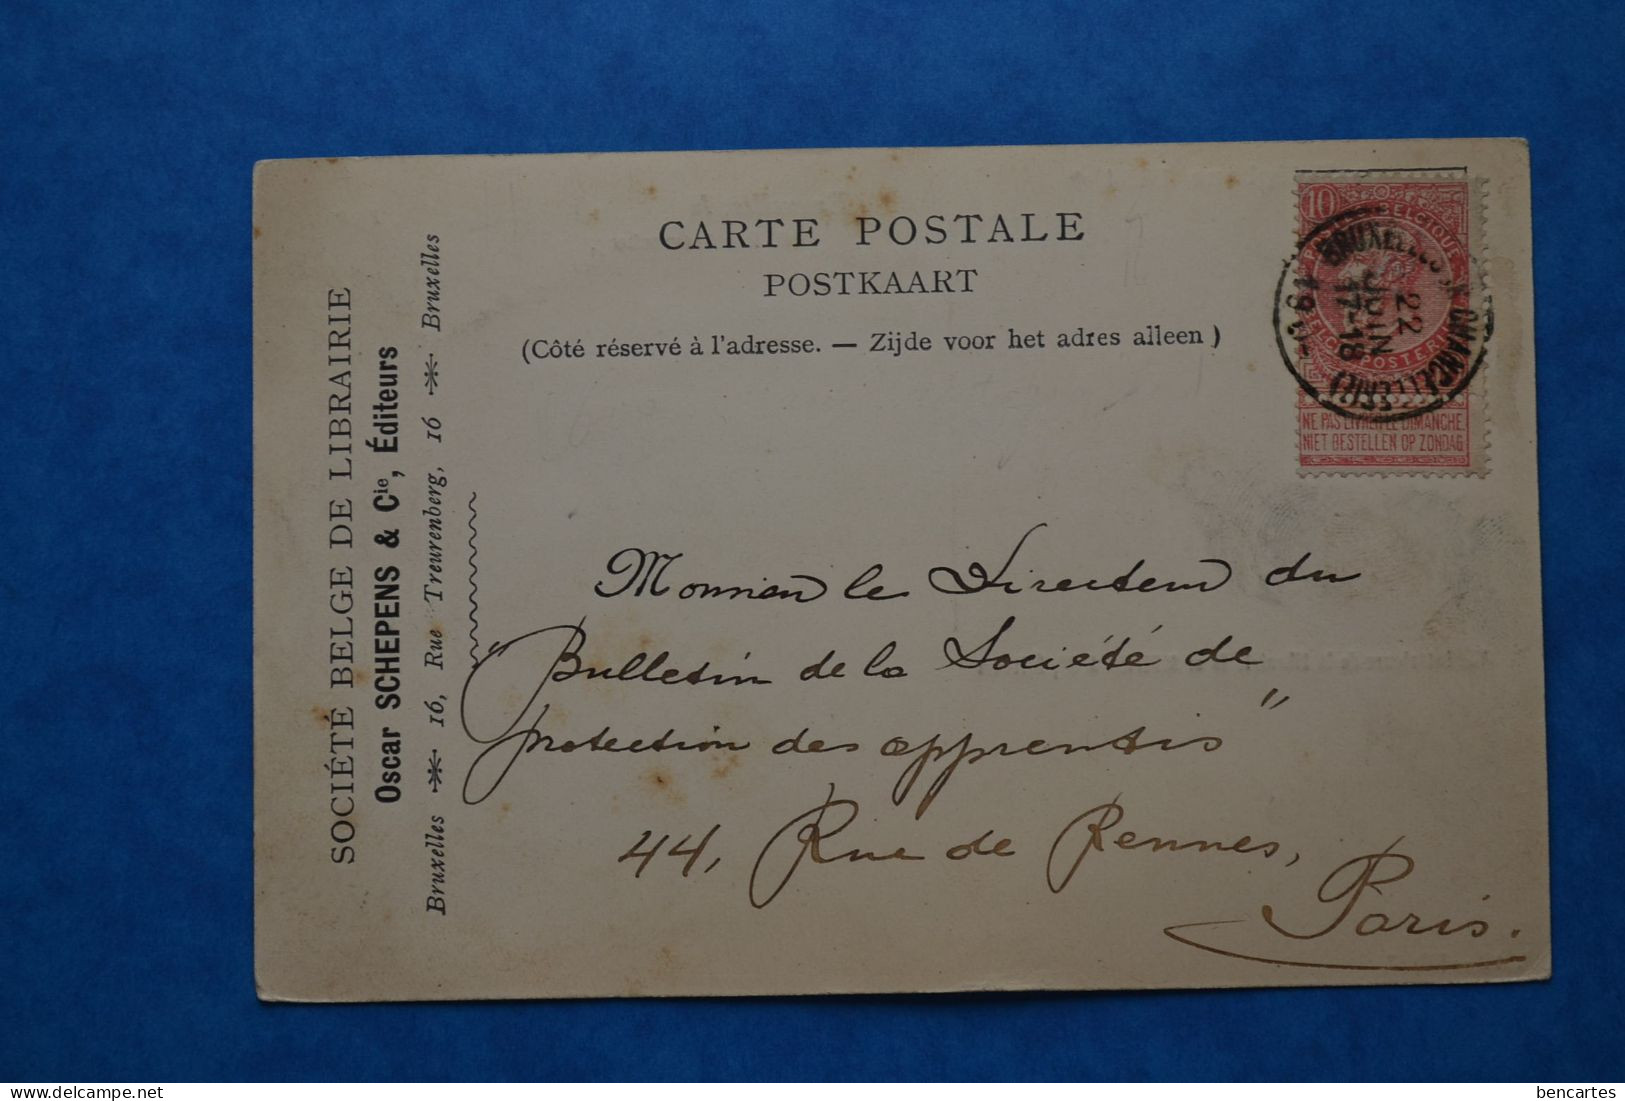 SOCIÉTÉ BELGE DE LIBRAIRIE
Oscar SCHEPENS & Cie, Éditeurs
Bruxelles 16, Rue Treurenberg, 16 Bruxelles
CARTE POSTALE
POSTKAART
(Côté réservé à l'adresse. — Zijde voor het adres alleen)
10
BELGIQUE
NE PAS LIVRER LE DIMANCHE.
NIET BESTELLEN OP ZONDAG
BRUXELLES (CHANCELLERIE)
22
JUIN
17-18
Monsieur le Directeur du
"Bulletin de la Société de
protection des apprentis"
44, Rue de Rennes,
Paris.
delcampe.net
bencartes